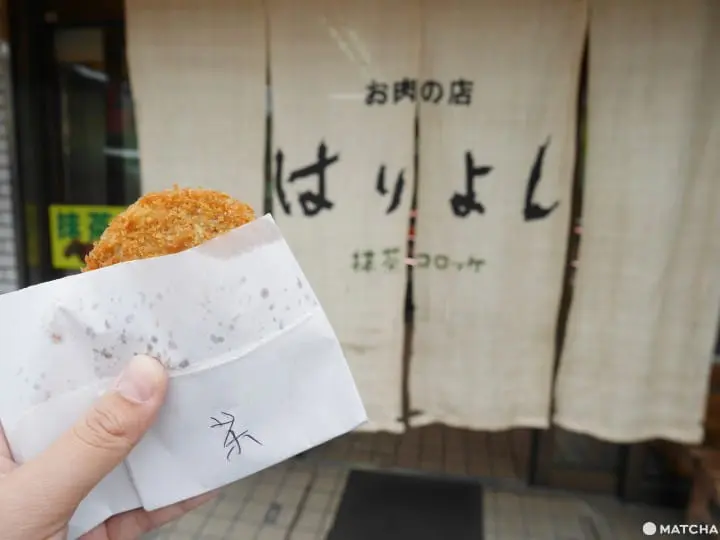 お肉の店
はりよし
抹茶コロッケ
抹茶
茶
MATCHA